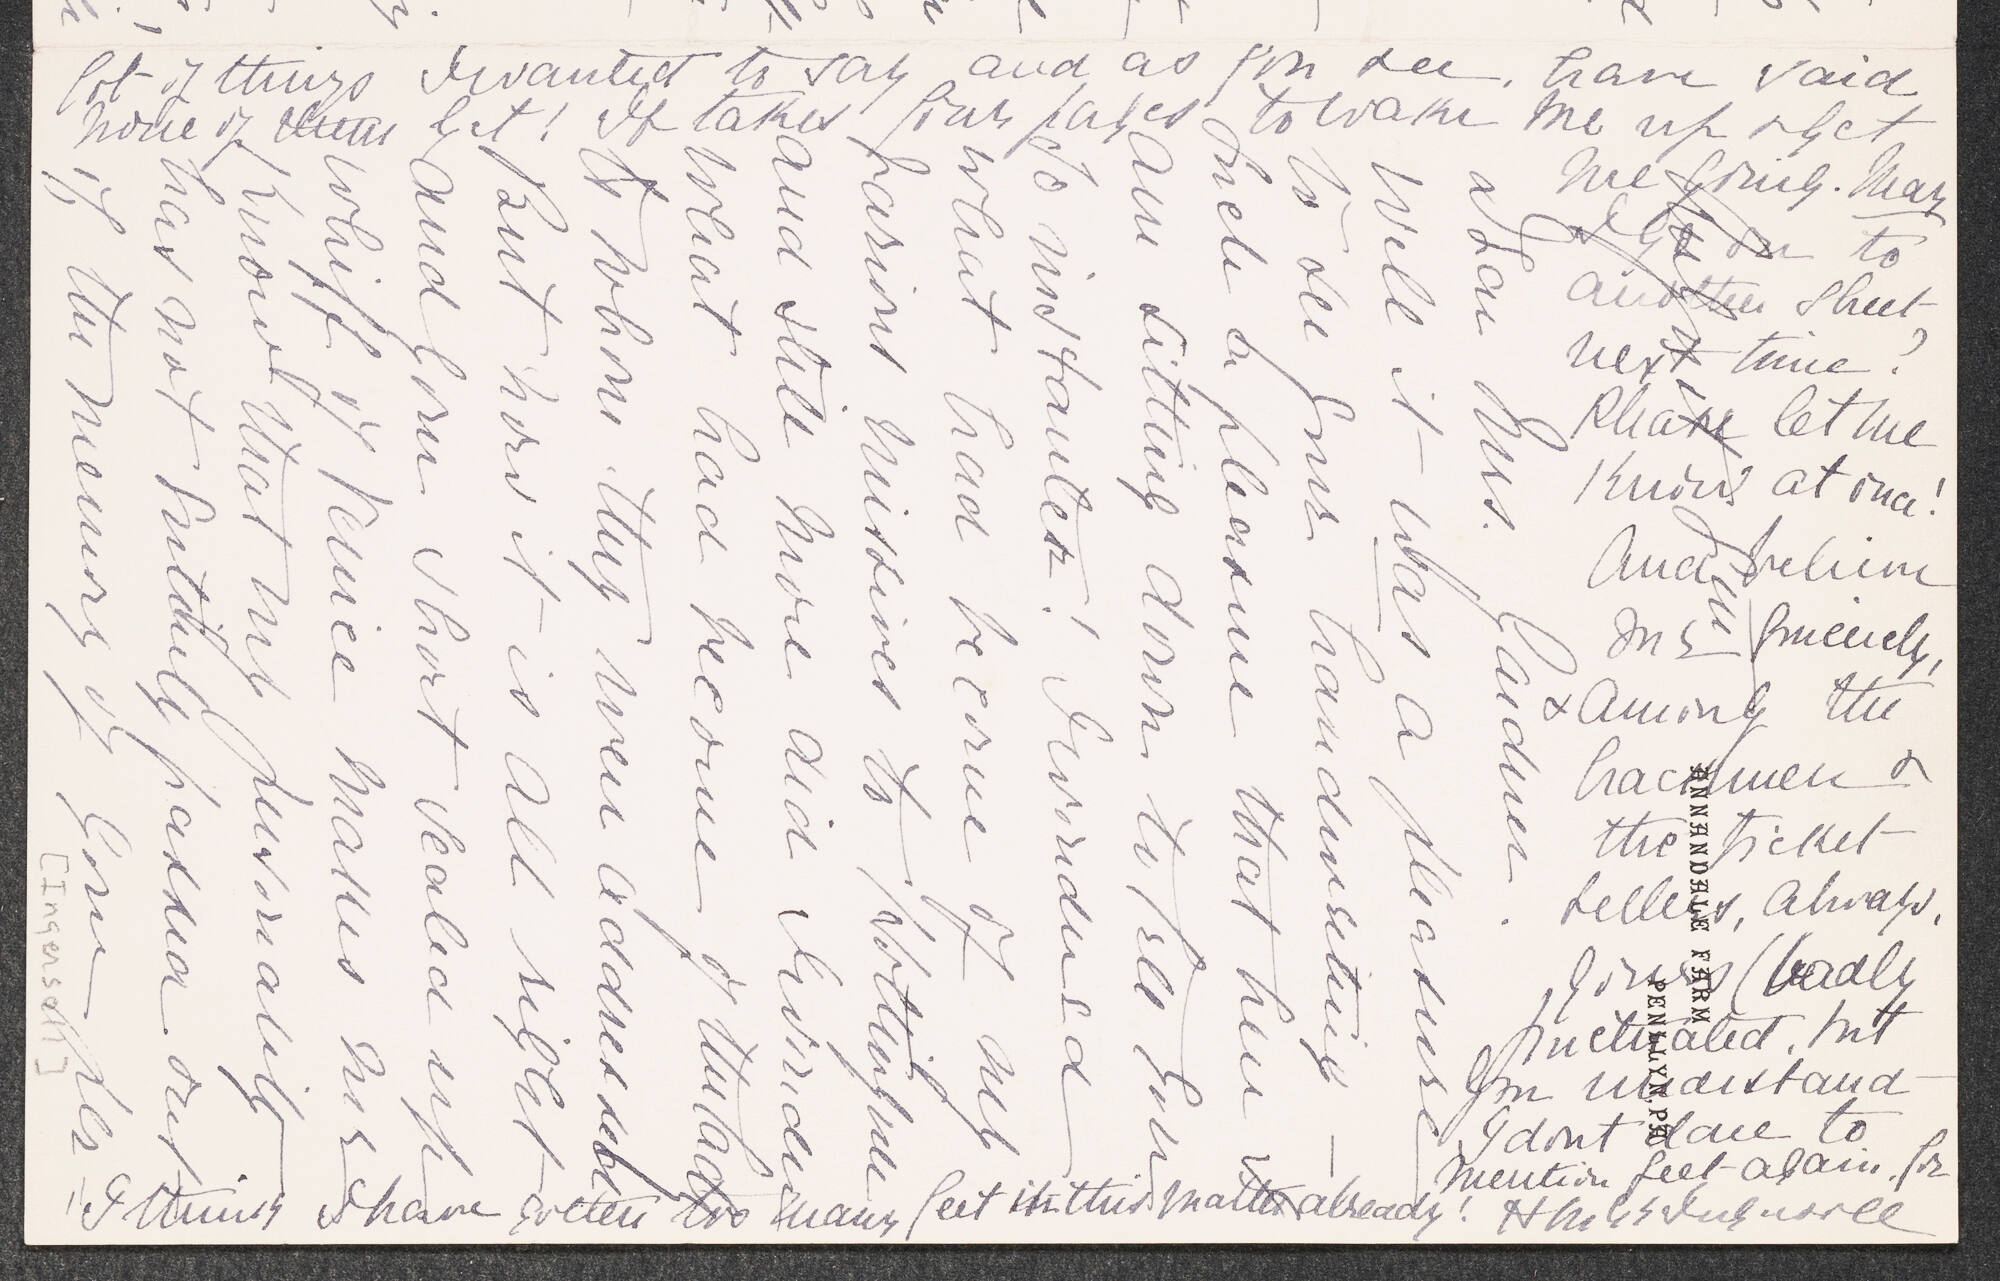 ANNENDELE FARM
PENLLYN, PA
Dear Mrs. Gardner.
Well it was a pleasure
to see your handwriting —
such a pleasure that here I
am sitting down to tell you
so instanter! I wondered
what had become of my
missives to
and still more did I wonder
what had become of the lady
to whom they were addressed
But now it is all right
and your short sealed up
whiff of Venice makes me
know that my personality
has not entirely passed out
of the memory of your
lot of things I wanted to say and as you see, have said
none of them yet! It takes four pages to wake me up & get
me going. May
I go on to
another sheet
next time?
Please let me
know at once!
And believe
me sincerely,
& among the
hackmen &
the ticket
sellers, always,
yours (badly
punctuated, but
you understand
I dont dare to
mention feet again. for
I think I have gotten too many feet in this matter already!
[Ingersoll]